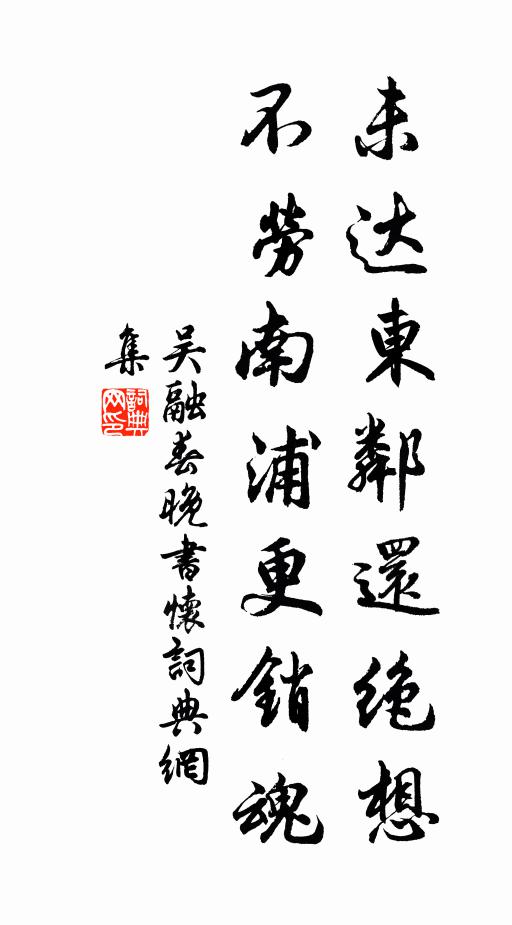 未达東鄰還絶想
不勞南浦更銷魂
吴融春晚書懷詞典網
集
詞典网印